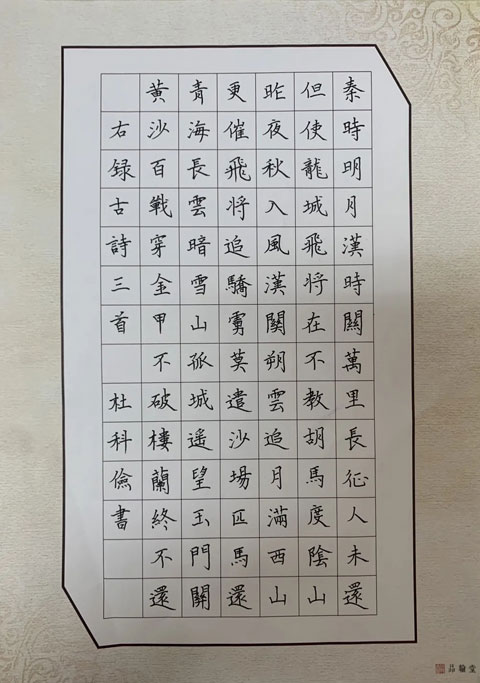 秦時明月漢時關萬里長征人未還
但使龍城飛將在不教胡馬度陰山
昨夜秋入風漢關朔雲追月滿西山
更催飛將追驕虜莫遣沙場匹馬還
青海長雲暗雪山孤城遥望玉門關
黄沙百戰穿金甲不破樓蘭終不還
右録古詩三首 杜科儉書
品翰堂